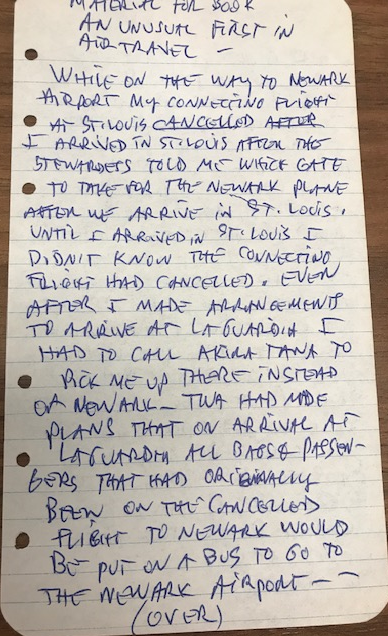 MATERIAL FOR BOOK
AN UNUSUAL FIRST IN
AIR TRAVEL —
WHILE ON THE WAY TO NEWARK
AIRPORT MY CONNECTING FLIGHT
AT ST. LOUIS CANCELLED AFTER
I ARRIVED IN ST. LOUIS AFTER THE
STEWARDESS TOLD ME WHICH GATE
TO TAKE FOR THE NEWARK PLANE
AFTER WE ARRIVE IN ST. LOUIS.
UNTIL I ARRIVED IN ST. LOUIS I
DIDN'T KNOW THE CONNECTING
FLIGHT HAD CANCELLED. EVEN
AFTER I MADE ARRANGEMENTS
TO ARRIVE AT LAGUARDIA I
HAD TO CALL AKIRA TANA TO
PICK ME UP THERE INSTEAD
OF NEWARK — TWA HAD MADE
PLANS THAT ON ARRIVAL AT
LAGUARDIA ALL BAGS & PASSEN-
GERS THAT HAD ORIGINALLY
BEEN ON THE CANCELLED
FLIGHT TO NEWARK WOULD
BE PUT ON A BUS TO GO TO
THE NEWARK AIRPORT — —
(OVER)